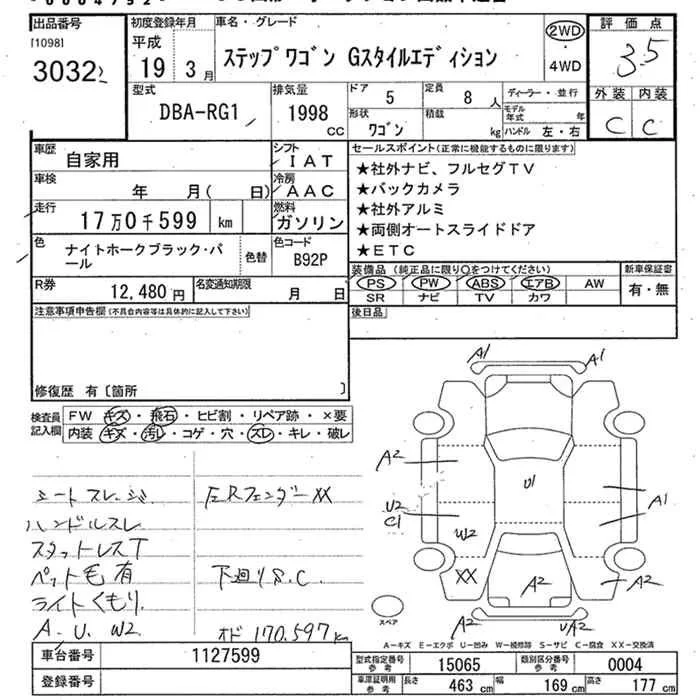 出品番号
[1098]
3032
初度登録年月
平成
19年 3月
車名・グレード
ステップワゴン Gスタイルエディション
2WD
・
4WD
評価点
3.5
外装 内装
C C
型式
DBA-RG1
排気量
1998 CC
ドア 5
定員 8人
形状 ワゴン
積載 kg
ディーラー・並行
モデル年式 年
ハンドル 左・右
車歴 自家用
シフト IAT
車検 年 月( 日)
冷房 AAC
走行 17万0千599 km
燃料 ガソリン
色 ナイトホークブラック・パール
色替
色コード B92P
R券 12,480円
名変通知期限 月 日
セールスポイント(正常に機能するものに限ります)
★社外ナビ、フルセグTV
★バックカメラ
★社外アルミ
★両側オートスライドドア
★ETC
装備品(純正品に限り○をつけてください)
PS PW ABS エアB AW
SR ナビ TV カワ
新車保証書
有・無
注意事項申告欄(不具合内容等は具体的に記入して下さい)
後日品
修復歴 有〔箇所 〕
検査員記入欄
FW キズ・飛石・ヒビ割・リペア跡・×要
内装 キズ・汚レ・コゲ・穴・スレ・キレ・破レ
シートスレ、シミ
左Rフェンダー XX
ハンドルスレ
スタットレスT
ペット毛有
下廻りS.C.
ライトくもり.
A. U. W2
オド 170.597km
A1 A1
A2
U1
A1
U2
C1
W2
XX
A2
A2
A2
UA2
スペア
A=キズ E=エクボ U=凹み W=補修跡 S=サビ C=腐食 XX=交換済
車台番号 1127599
登録番号
型式指定番号 参考 15065
類別区分番号 参考 0004
車庫証明用 参考 長さ 463 cm 幅 169 cm 高さ 177 cm